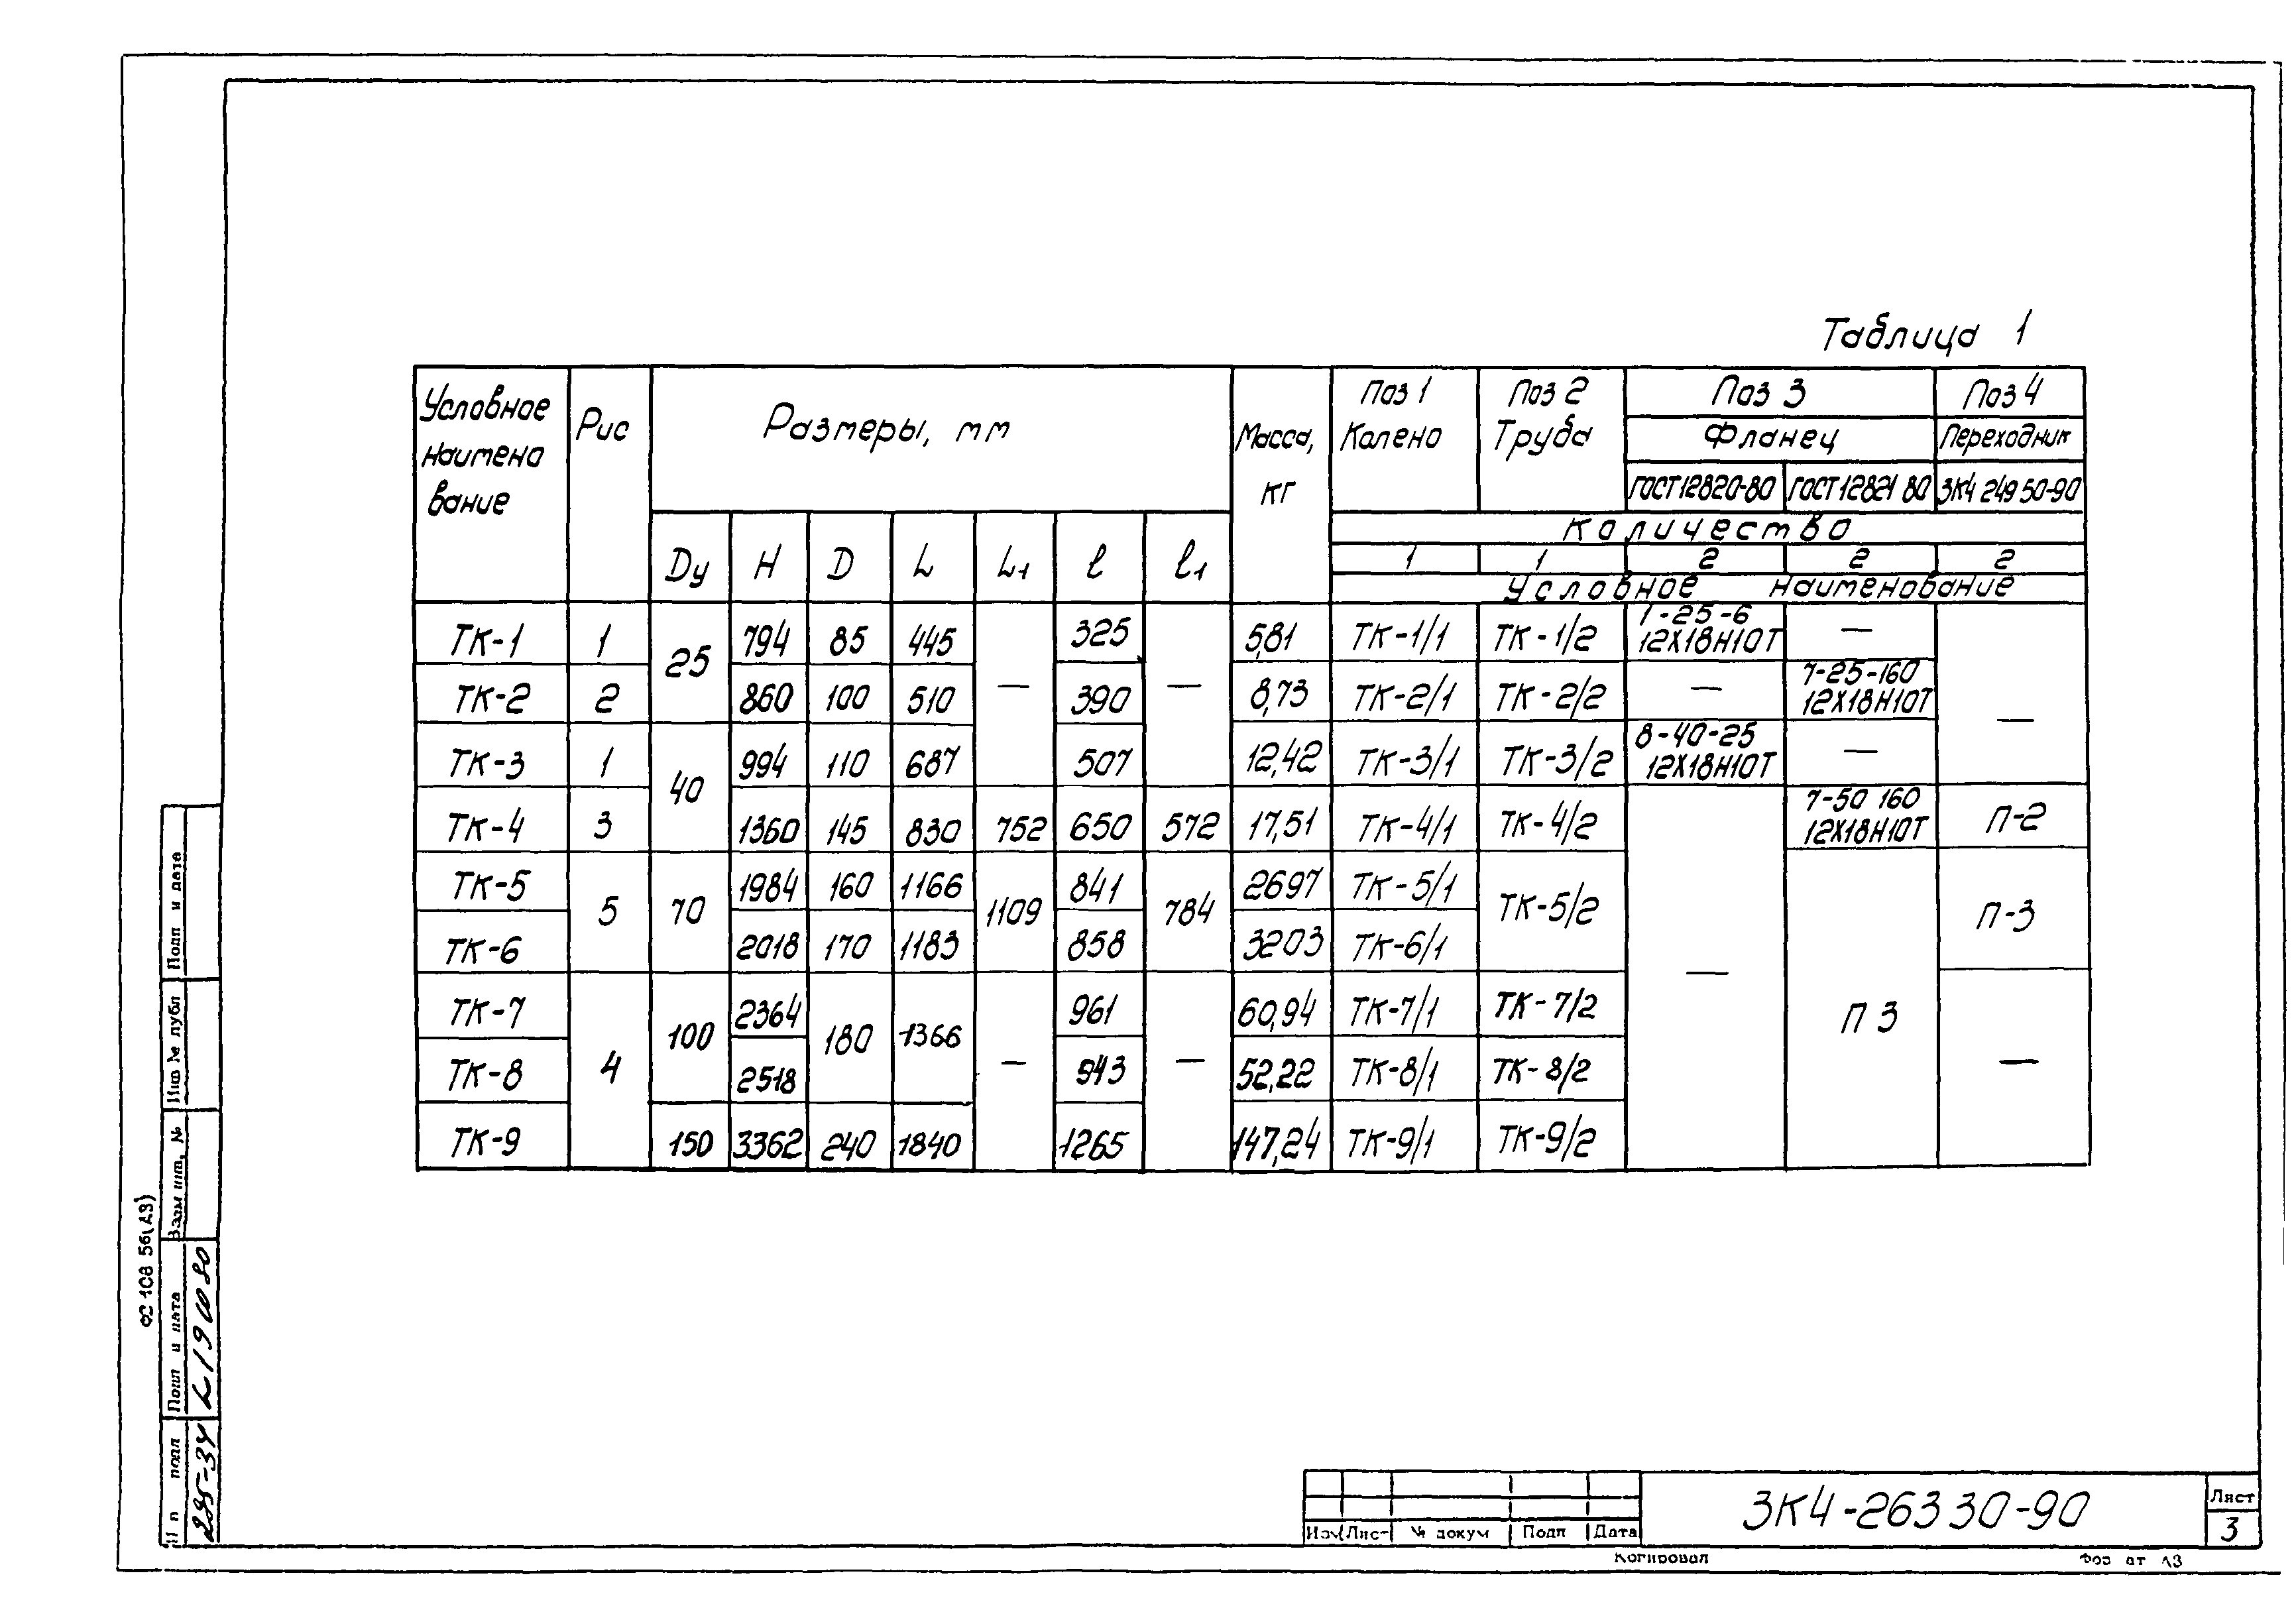 Таблица 1
Условное наименование
Рис
Размеры, мм
Масса, кг
Поз 1 Колено
Поз 2 Труба
Поз 3
Поз 4
Фланец
Переходник
ГОСТ12820-80 ГОСТ12821 80 ЗК4 249 50-90
Количество
1 1 2 2 2
Условное наименование
Dу H D L L1 ℓ ℓ1
ТК-1 1 25 794 85 445 — 325 — 5,81 ТК-1/1 ТК-1/2 1-25-6 12Х18Н10Т — —
ТК-2 2 860 100 510 390 8,73 ТК-2/1 ТК-2/2 — 7-25-160 12Х18Н10Т
ТК-3 1 40 994 110 687 507 12,42 ТК-3/1 ТК-3/2 8-40-25 12Х18Н10Т —
ТК-4 3 1360 145 830 752 650 572 17,51 ТК-4/1 ТК-4/2 — 7-50 160 12Х18Н10Т П-2
ТК-5 5 70 1984 160 1166 1109 841 784 2697 ТК-5/1 ТК-5/2 П 3 П-3
ТК-6 2018 170 1183 858 3203 ТК-6/1
ТК-7 4 100 2364 180 1366 — 961 — 60,94 ТК-7/1 ТК-7/2 —
ТК-8 2518 943 52,22 ТК-8/1 ТК-8/2
ТК-9 150 3362 240 1840 1265 147,24 ТК-9/1 ТК-9/2
Подп и дата
Инв № дубл
Взам инв. №
Подп и дата
подл
295-34
Ф2 108 56(А3)
Изм Лист № докум Подп Дата
ЗК4-26330-90
Лист
3
Копировал
А3